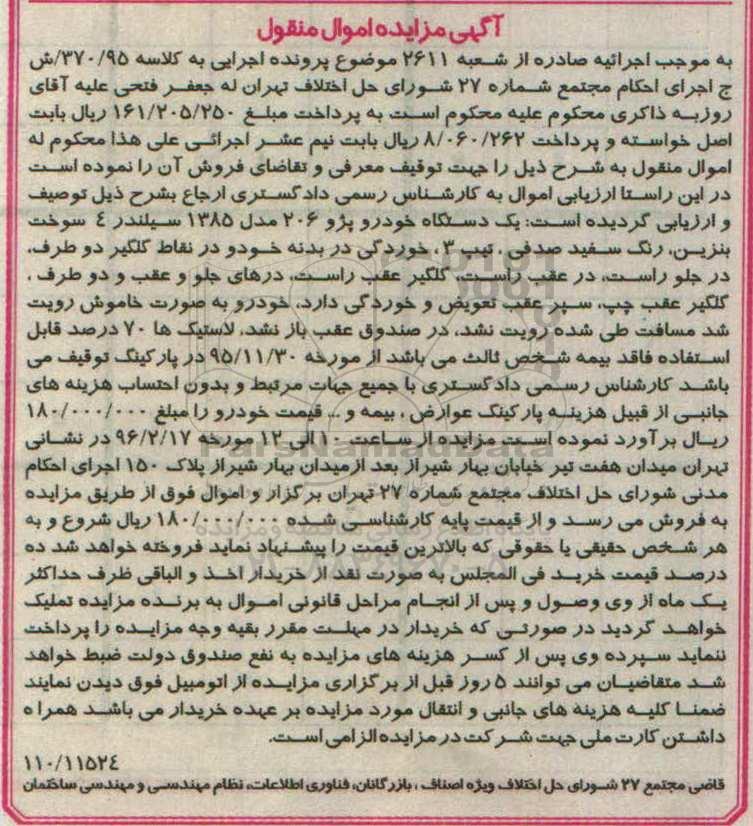 آگهی مزایده اموال منقول
به موجب اجرائیه صادره از شعبه ۲۶۱۱ موضوع پرونده اجرایی به کلاسه ۳۷۰/۹۵/ش
ج اجرای احکام مجتمع شماره ۲۷ شورای حل اختلاف تهران له جعفر فتحی علیه آقای
روزبه ذاکری محکوم علیه محکوم است به پرداخت مبلغ ۱۶۱/۲۰۵/۲۵۰ ریال بابت
اصل خواسته و پرداخت ۸/۰۶۰/۲۶۲ ریال بابت نیم عشر اجرائی علی هذا محکوم له
اموال منقول به شرح ذیل را جهت توقیف معرفی و تقاضای فروش آن را نموده است
در این راستا ارزیابی اموال به کارشناس رسمی دادگستری ارجاع بشرح ذیل توصیف
و ارزیابی گردیده است: یک دستگاه خودرو پژو ۲۰۶ مدل ۱۳۸۵ سیلندر ٤ سوخت
بنزین، رنگ سفید صدفی، تیپ ۳ ، خوردگی در بدنه خودو در نقاط گلگیر دو طرف،
در جلو راست، در عقب راست، گلگیر عقب راست، درهای جلو و عقب و دو طرف ،
گلگیر عقب چپ، سپر عقب تعویض و خوردگی دارد، خودرو به صورت خاموش رویت
شد مسافت طی شده رویت نشد، در صندوق عقب باز نشد، لاستیک ها ۷۰ درصد قابل
استفاده فاقد بیمه شخص ثالث می باشد از مورخه ۹۵/۱۱/۳۰ در پارکینگ توقیف می
باشد کارشناس رسمی دادگستری با جمیع جهات مرتبط و بدون احتساب هزینه های
جانبی از قبیل هزینه پارکینگ عوارض ، بیمه و ... قیمت خودرو را مبلغ ۱۸۰/۰۰۰/۰۰۰
ریال برآورد نموده است مزایده از ساعت ۱۰ الی ۱۲ مورخه ۹۶/۲/۱۷ در نشانی
تهران میدان هفت تیر خیابان بهار شیراز بعد ازمیدان بهار شیراز پلاک ۱۵۰ اجرای احکام
مدنی شورای حل اختلاف مجتمع شماره ۲۷ تهران برگزار و اموال فوق از طریق مزایده
به فروش می رسد و از قیمت پایه کارشناسی شده ۱۸۰/۰۰۰/۰۰۰ ریال شروع و به
هر شخص حقیقی یا حقوقی که بالاترین قیمت را پیشنهاد نماید فروخته خواهد شد ده
درصد قیمت خرید فی المجلس به صورت نقد از خریدار اخذ و الباقی ظرف حداکثر
یک ماه از وی وصول و پس از انجام مراحل قانونی اموال به برنده مزایده تملیک
خواهد گردید در صورتی که خریدار در مهلت مقرر بقیه وجه مزایده را پرداخت
ننماید سپرده وی پس از کسر هزینه های مزایده به نفع صندوق دولت ضبط خواهد
شد متقاضیان می توانند ۵ روز قبل از برگزاری مزایده از اتومبیل فوق دیدن نمایند
ضمنا کلیه هزینه های جانبی و انتقال مورد مزایده بر عهده خریدار می باشد همراه
داشتن کارت ملی جهت شرکت در مزایده الزامی است.
۱۱۰/۱۱۵۲٤
قاضی مجتمع ۲۷ شورای حل اختلاف ویژه اصناف ، بازرگانان، فناوری اطلاعات، نظام مهندسی و مهندسی ساختمان
ParsNamadData